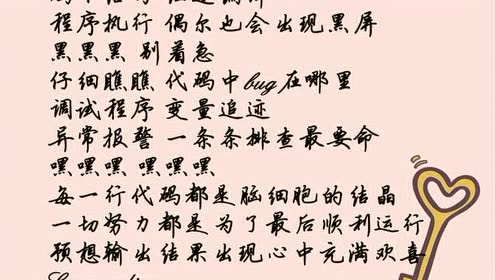 程序执行 偶尔也会出现黑屏
黑黑黑 别着急
仔细瞧瞧 代码中bug在哪里
调试程序 变量追迹
异常报警 一条条排查最要命
嘿嘿嘿 嘿嘿嘿
每一行代码都是脑细胞的结晶
一切努力都是为了最后顺利运行
预想输出结果出现心中充满欢喜